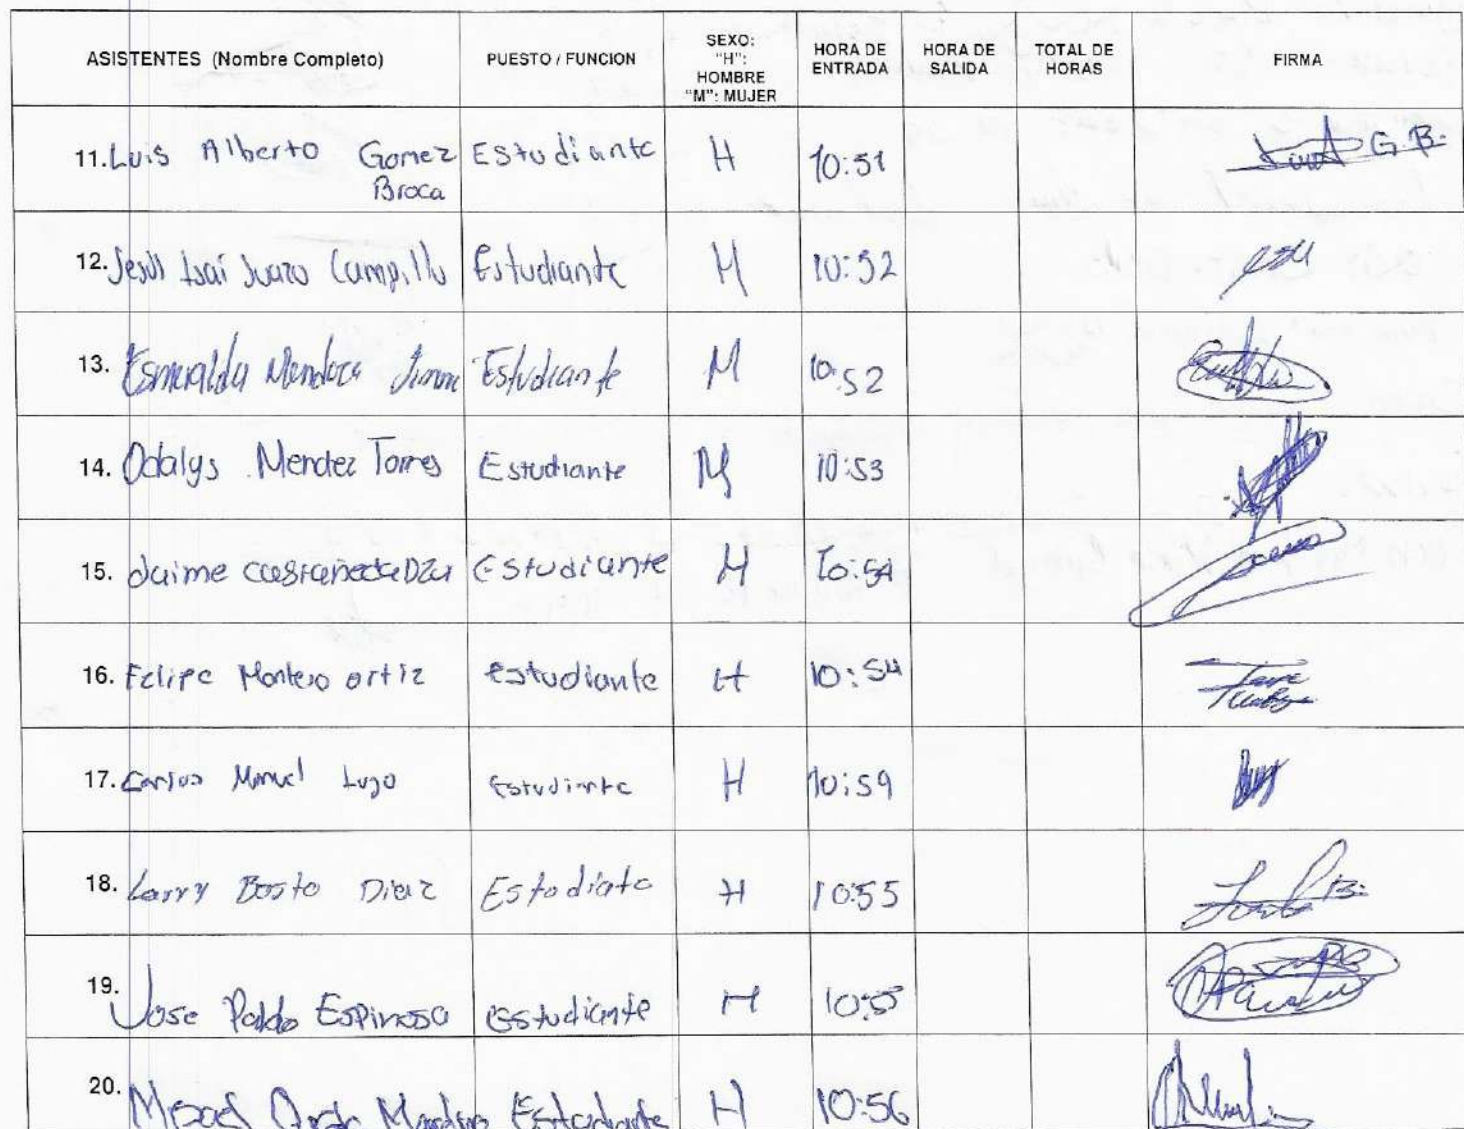 ASISTENTES (Nombre Completo) PUESTO / FUNCION SEXO: "H": HOMBRE "M": MUJER HORA DE ENTRADA HORA DE SALIDA TOTAL DE HORAS FIRMA
11. Luis Alberto Gomez Estudiante H 10:51 G.B.
Broca
12. Jesus Isai Juarez Campillo Estudiante H 10:52
13. Esmeralda Mendoza Estudiante M 10:52
14. Odalys Mendez Torres Estudiante M 10:53
15. Jaime castañeda Estudiante H 10:54
16. Felipe Montero ortiz estudiante H 10:54
17. Carlos Manuel Lugo Estudiante H 10:59
18. Larry Bosto Diaz Estodiate H 10:55
19. Jose Espinosa estudiante H 10:55
20. Estudiante H 10:56